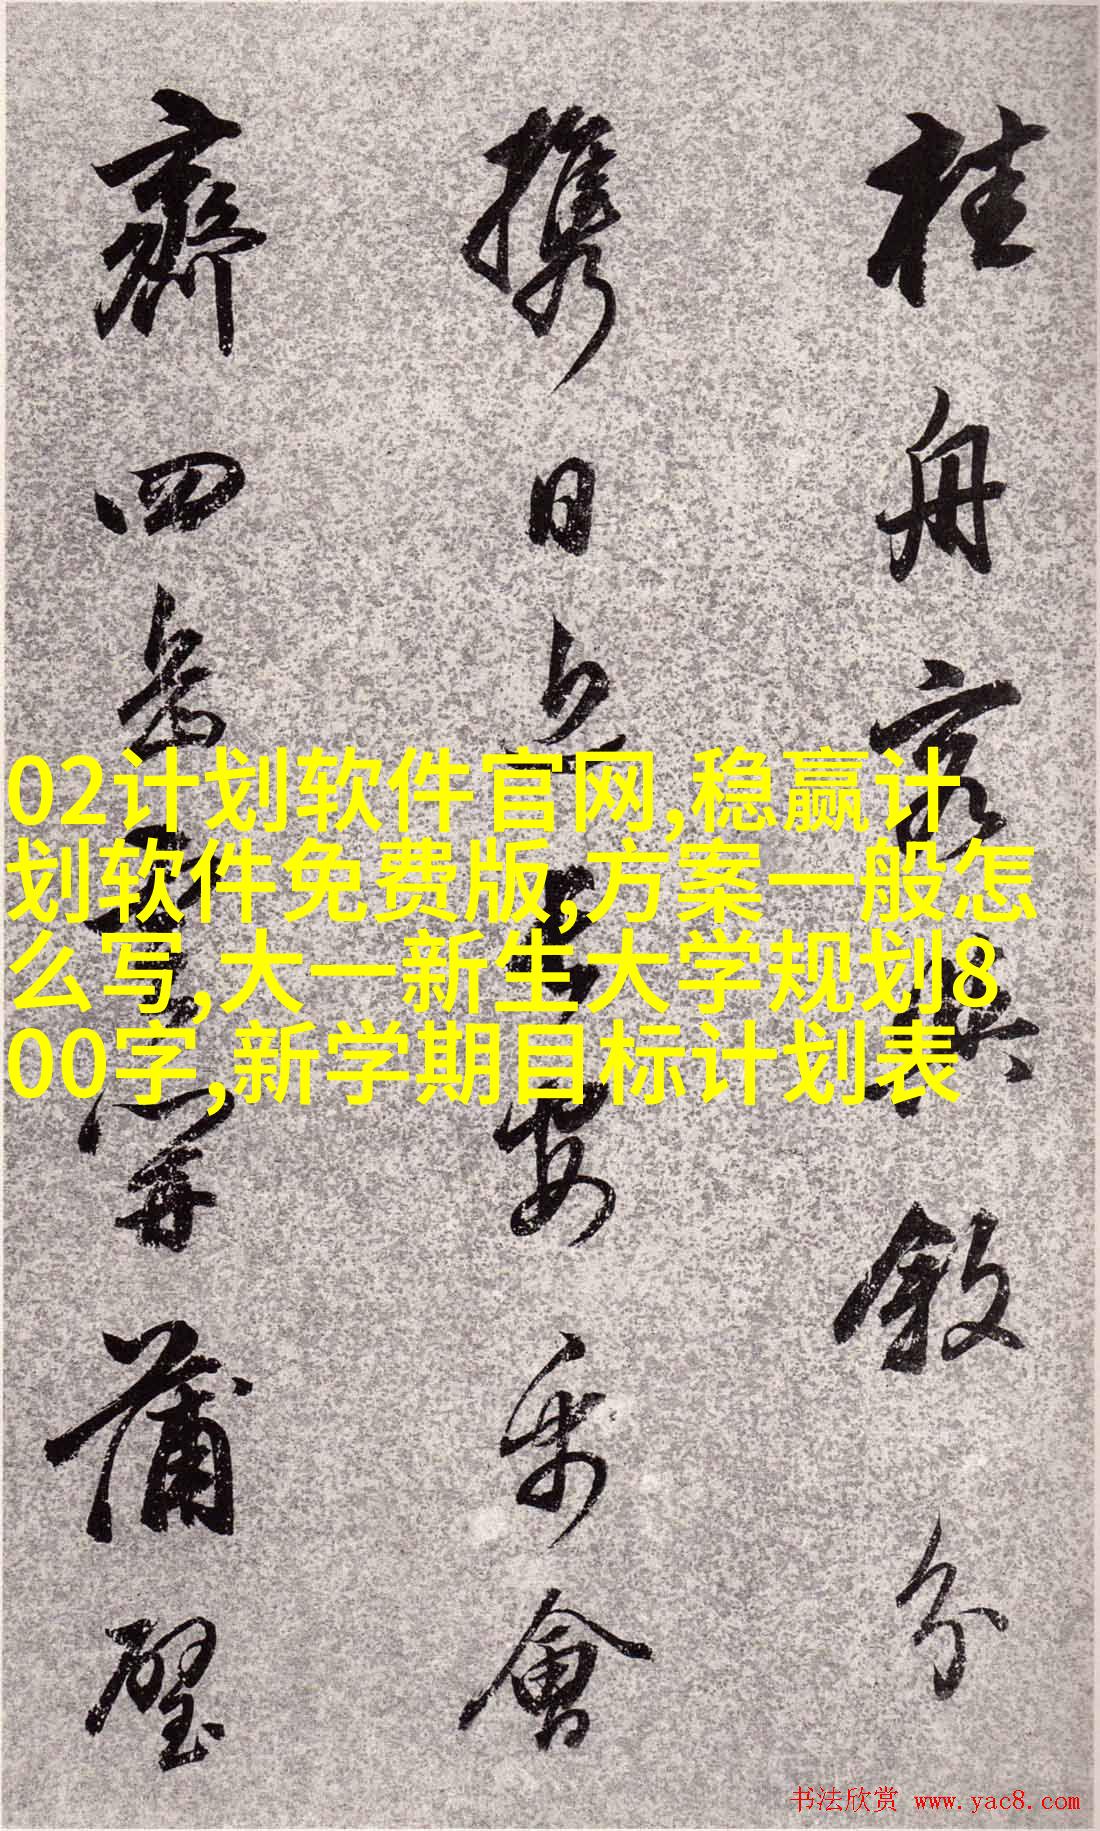 桂舟容與敘分
攜日
安樂會
齊四岳
第蒲壁
02计划软件官网,稳赢计
划软件免费版,方案一般怎
么写,大一新生大学规划8
00字,新学期目标计划表
书法欣赏 www.yac8.com